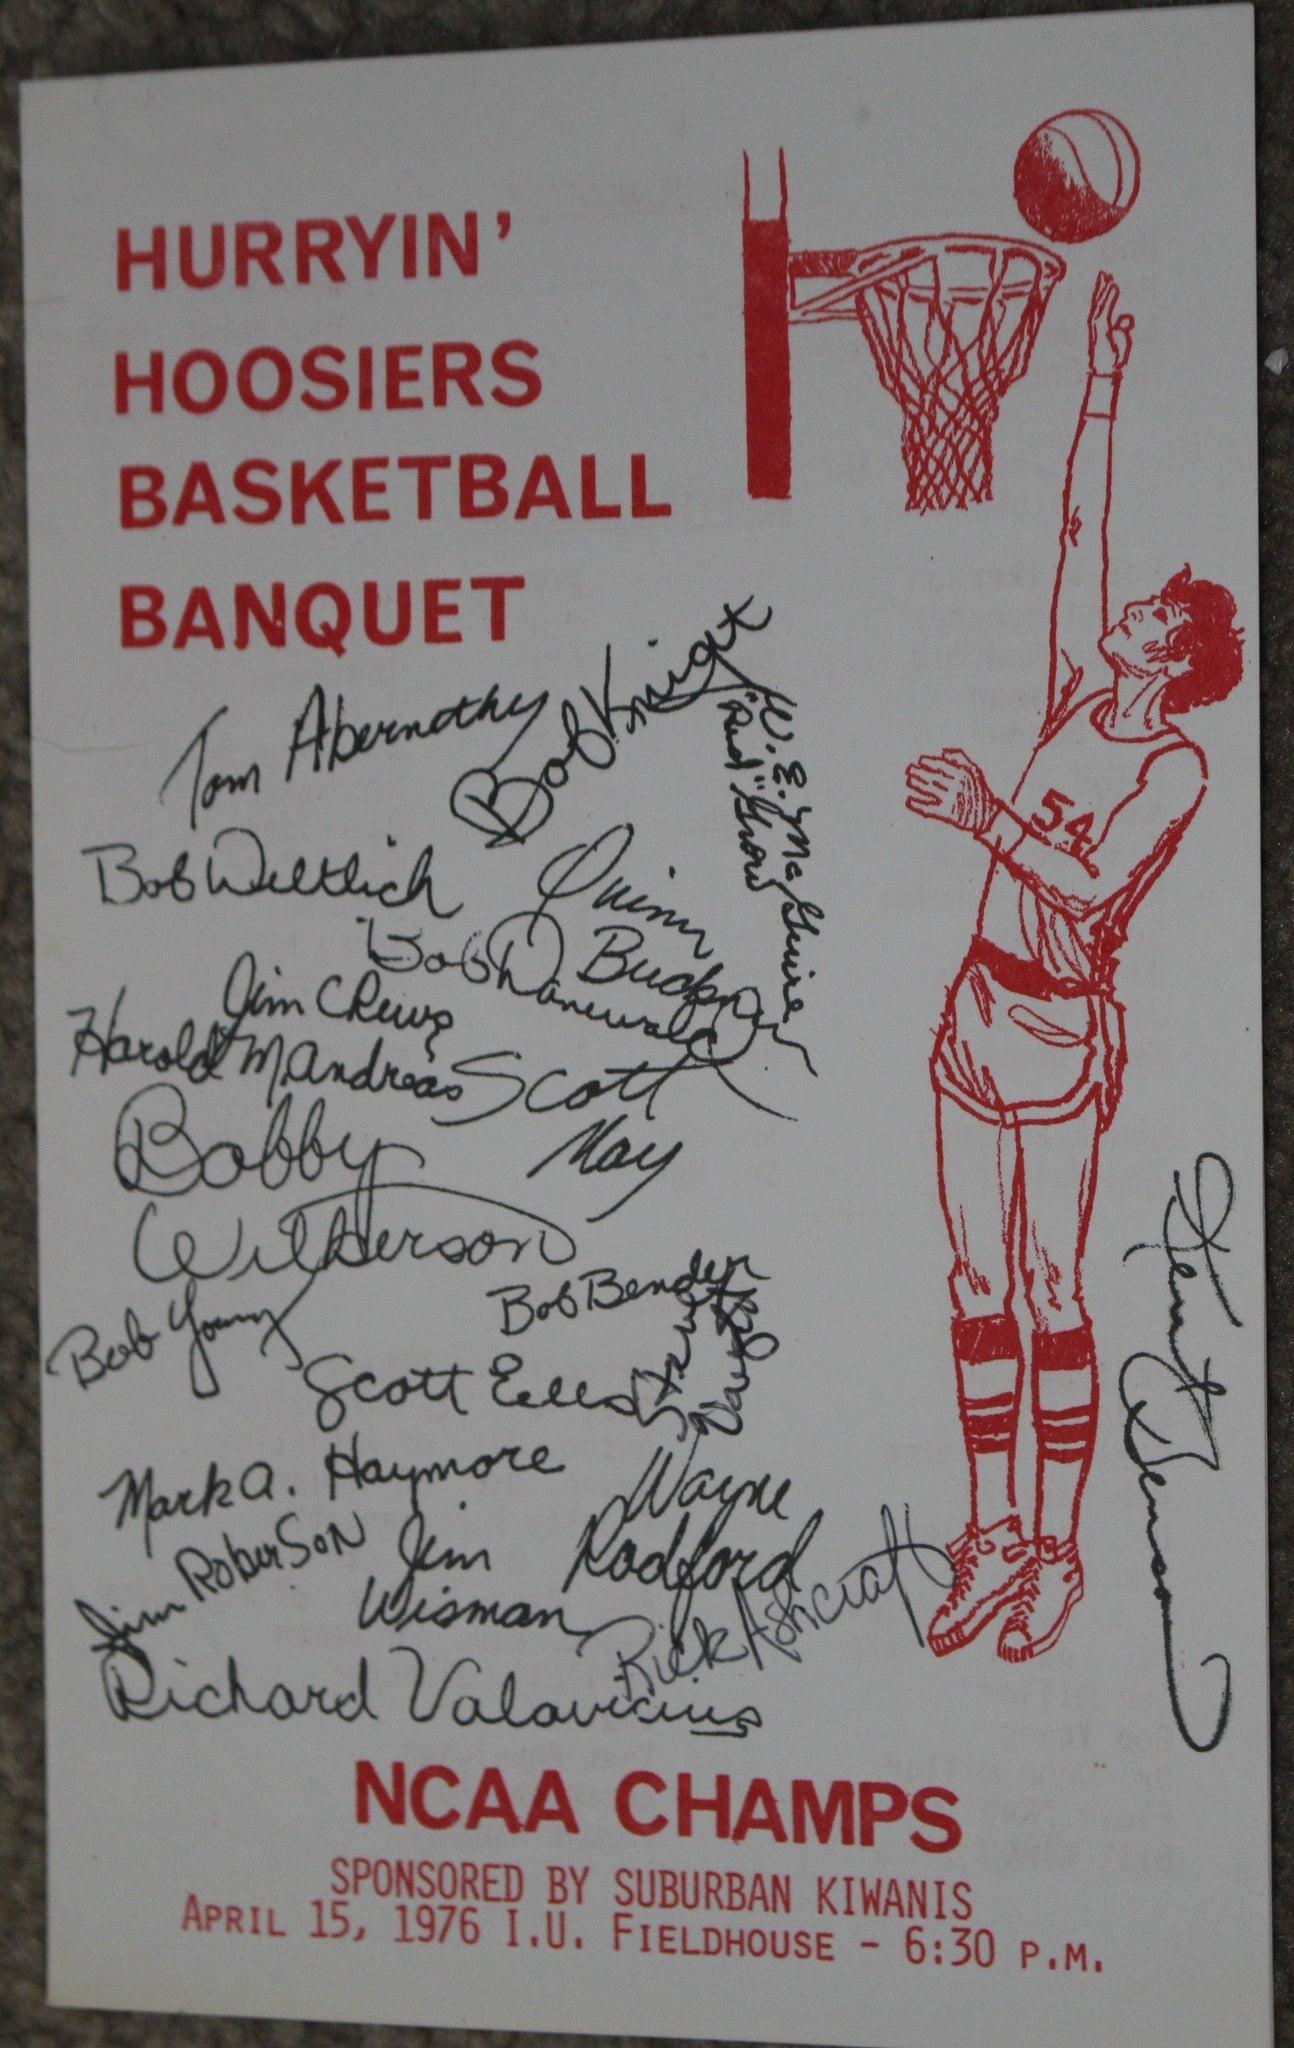 HURRYIN'
HOOSIERS
BASKETBALL
BANQUET
Tom Abernathy
Bob Knight
W. E. McGuire
"Red" Grow
Bob Weltlich
Quinn
Buckner
Bob Donewald
Jim Crews
Harold M. Andreas
Scott
May
Bobby
Wilkerson
54
Kent Benson
Bob Young
Bob Bender
Scott Eells
Mark A. Haymore
Wayne
Radford
Jim Roberson
Jim
Wisman
Rick Ashcraft
Richard Valavicius
NCAA CHAMPS
SPONSORED BY SUBURBAN KIWANIS
APRIL 15, 1976 I.U. FIELDHOUSE - 6:30 P.M.